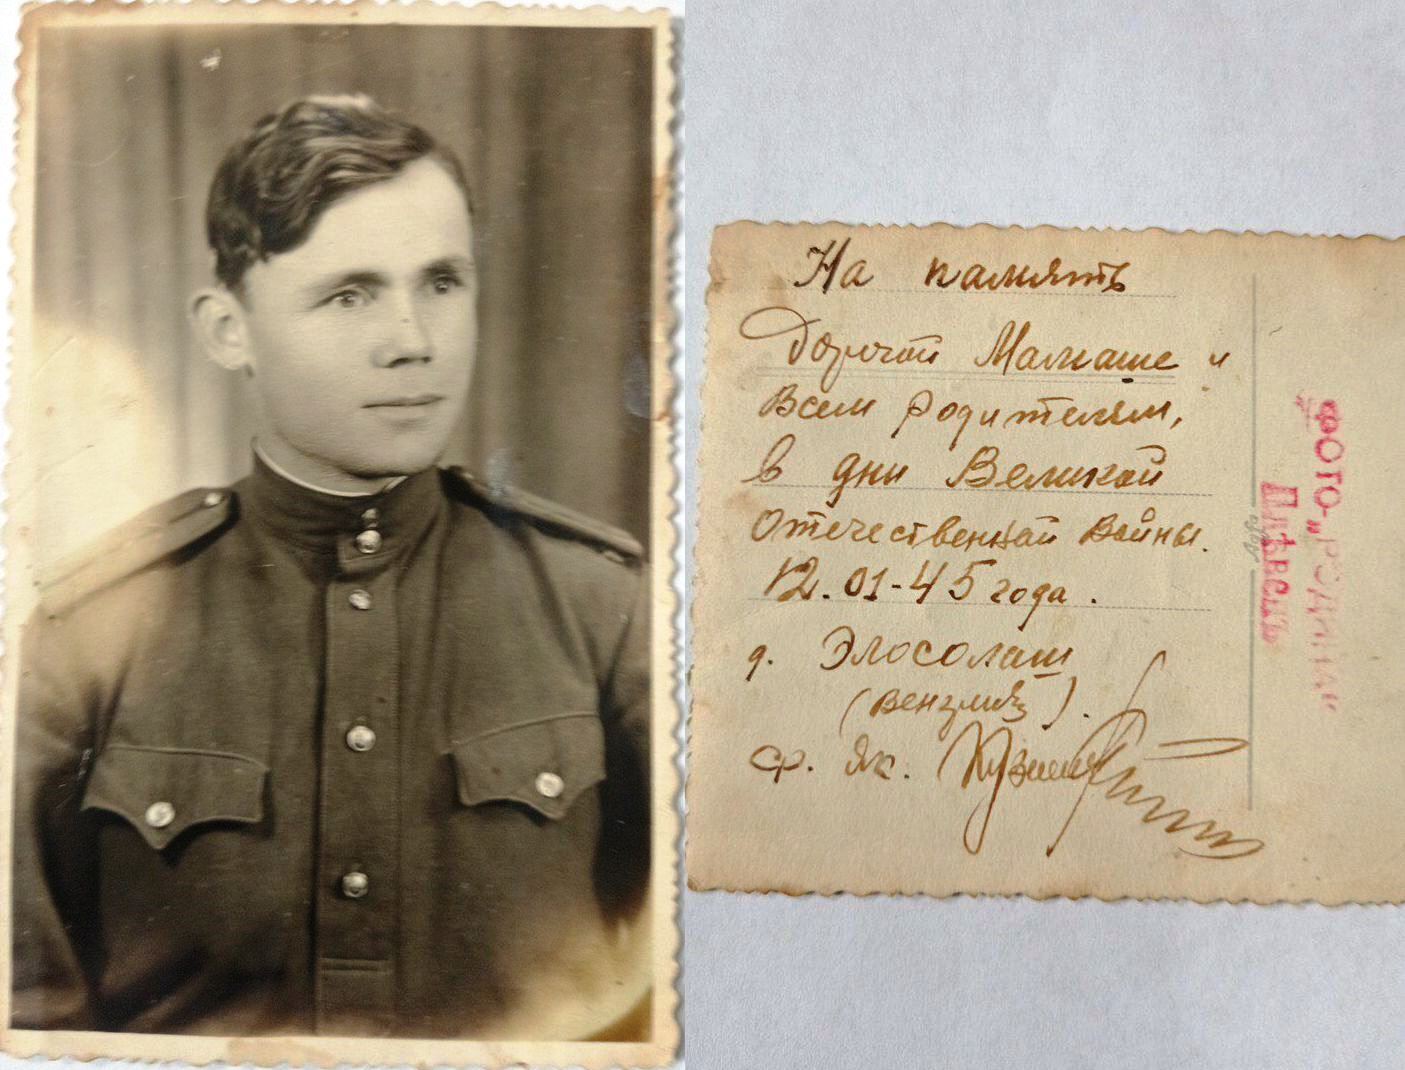 На память
Дорогой Мамаше и
Всем родителям,
в дни Великой
Отечественной Войны.
12.01-45 года.
д. Элосолаш
ср. Як.
ФОТО-„РОДИНА“
Плѣвенъ